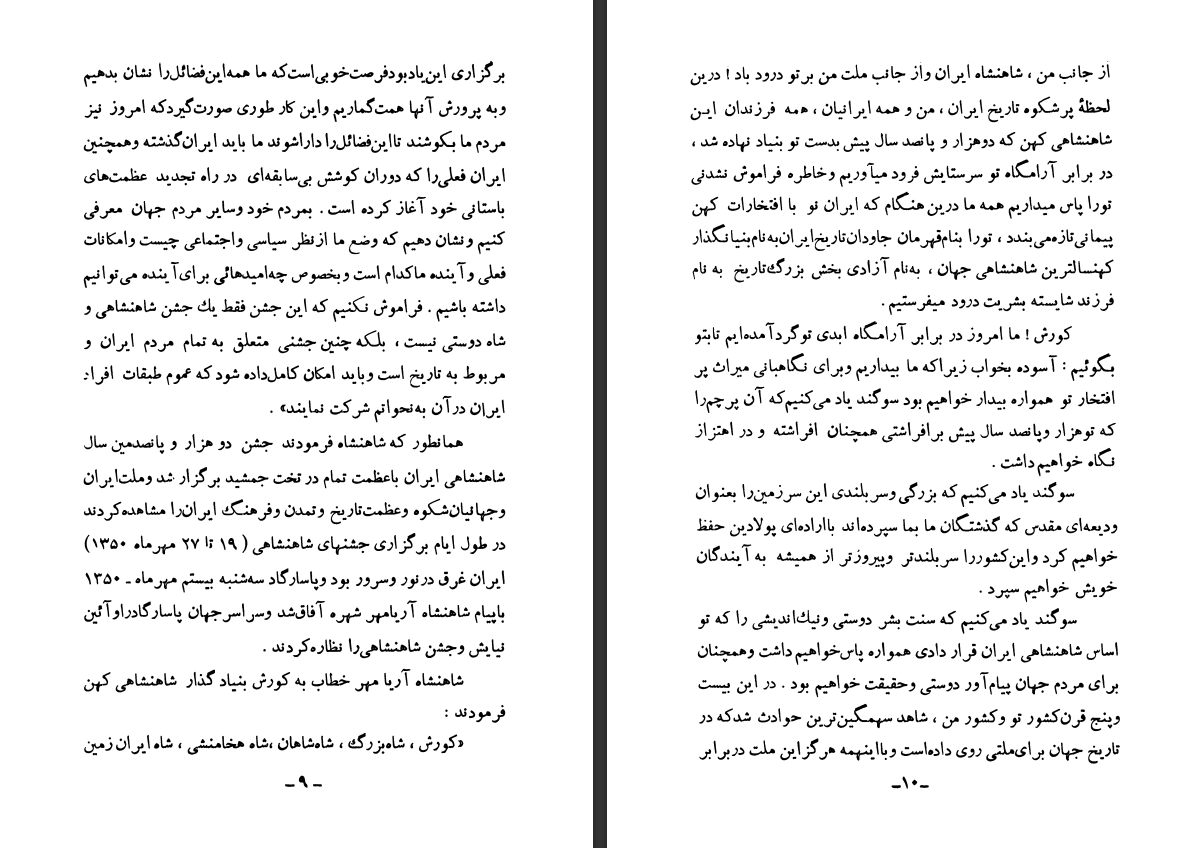 برگزاری این یادبود فرصت خوبی است که ما همه این فضائل را نشان بدهیم
و به پرورش آنها همت گماریم و این کار طوری صورت گیرد که امروز نیز
مردم ما بکوشند تا این فضائل را دارا شوند ما باید ایران گذشته و همچنین
ایران فعلی را که دوران کوشش بی‌سابقه‌ای در راه تجدید عظمت‌های
باستانی خود آغاز کرده است . بمردم خود و سایر مردم جهان معرفی
کنیم و نشان دهیم که وضع ما از نظر سیاسی و اجتماعی چیست و امکانات
فعلی و آینده ما کدام است و بخصوص چه امیدهائی برای آینده می‌توانیم
داشته باشیم . فراموش نکنیم که این جشن فقط یك جشن شاهنشاهی و
شاه دوستی نیست ، بلکه چنین جشنی متعلق به تمام مردم ایران و
مربوط به تاریخ است و باید امکان کامل داده شود که عموم طبقات افراد
ایران در آن به نحو اتم شرکت نمایند» .
همانطور که شاهنشاه فرمودند جشن دو هزار و پانصدمین سال
شاهنشاهی ایران باعظمت تمام در تخت جمشید برگزار شد و ملت ایران
و جهانیان شکوه و عظمت تاریخ و تمدن و فرهنگ ایران را مشاهده کردند
در طول ایام برگزاری جشنهای شاهنشاهی ( ۱۹ تا ۲۷ مهر ماه ۱۳۵۰)
ایران غرق در نور و سرور بود و پاسارگاد سه‌شنبه بیستم مهر ماه ـ ۱۳۵۰
با پیام شاهنشاه آریامهر شهره آفاق شد و سراسر جهان پاسارگاد را و آئین
نیایش و جشن شاهنشاهی را نظاره کردند .
شاهنشاه آریا مهر خطاب به کورش بنیاد گذار شاهنشاهی کهن
فرمودند :
«کورش ، شاه بزرگ ، شاه شاهان ، شاه هخامنشی ، شاه ایران زمین
ـ ۹ ـ
از جانب من ، شاهنشاه ایران و از جانب ملت من بر تو درود باد ! درین
لحظهٔ پر شکوه تاریخ ایران ، من و همه ایرانیان ، همه فرزندان این
شاهنشاهی کهن که دو هزار و پانصد سال پیش بدست تو بنیاد نهاده شد ،
در برابر آرامگاه تو سر ستایش فرود میآوریم و خاطره فراموش نشدنی
تو را پاس میداریم همه ما درین هنگام که ایران نو با افتخارات کهن
پیمانی تازه می‌بندد ، تو را بنام قهرمان جاودان تاریخ ایران به نام بنیانگذار
کهنسالترین شاهنشاهی جهان ، به‌نام آزادی بخش بزرگ تاریخ به نام
فرزند شایسته بشریت درود میفرستیم .
کورش ! ما امروز در برابر آرامگاه ابدی تو گرد آمده‌ایم تا بتو
بگوئیم : آسوده بخواب زیرا که ما بیداریم و برای نگاهبانی میراث پر
افتخار تو همواره بیدار خواهیم بود سوگند یاد می‌کنیم که آن پرچم را
که تو هزار و پانصد سال پیش برافراشتی همچنان افراشته و در اهتزاز
نگاه خواهیم داشت .
سوگند یاد می‌کنیم که بزرگی و سربلندی این سرزمین را بعنوان
ودیعه‌ای مقدس که گذشتگان ما بما سپرده‌اند با اراده‌ای پولادین حفظ
خواهیم کرد و این کشور را سربلندتر و پیروزتر از همیشه به آیندگان
خویش خواهیم سپرد .
سوگند یاد می‌کنیم که سنت بشر دوستی و نیك‌اندیشی را که تو
اساس شاهنشاهی ایران قرار دادی همواره پاس خواهیم داشت و همچنان
برای مردم جهان پیام‌آور دوستی و حقیقت خواهیم بود . در این بیست
و پنج قرن کشور تو و کشور من ، شاهد سهمگین‌ترین حوادث شد که در
تاریخ جهان برای ملتی روی داده است و با اینهمه هرگز این ملت در برابر
ـ۱۰ـ